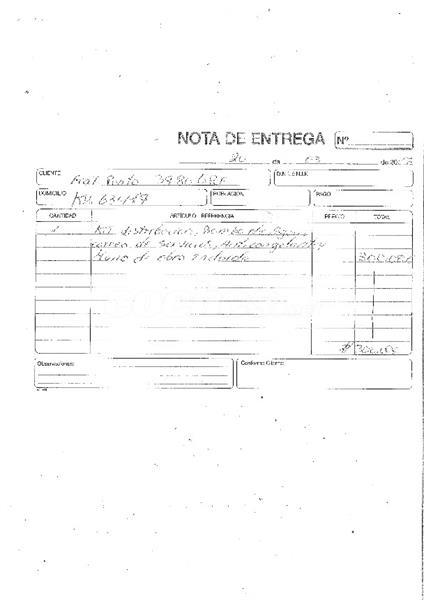 NOTA DE ENTREGA Nº
20 de 03 de 20
CLIENTE Fiat Punto D.N.I./N.I.F.
DOMICILIO Km 63419 POBLACION PAGO
CANTIDAD ARTICULO REFERENCIA PRECIO TOTAL
1 Kit distribucion, Bomba de Agua,
correa de Servicio, Anticongelante y
Mano de obra incluida
Observaciones: Conforme Cliente: